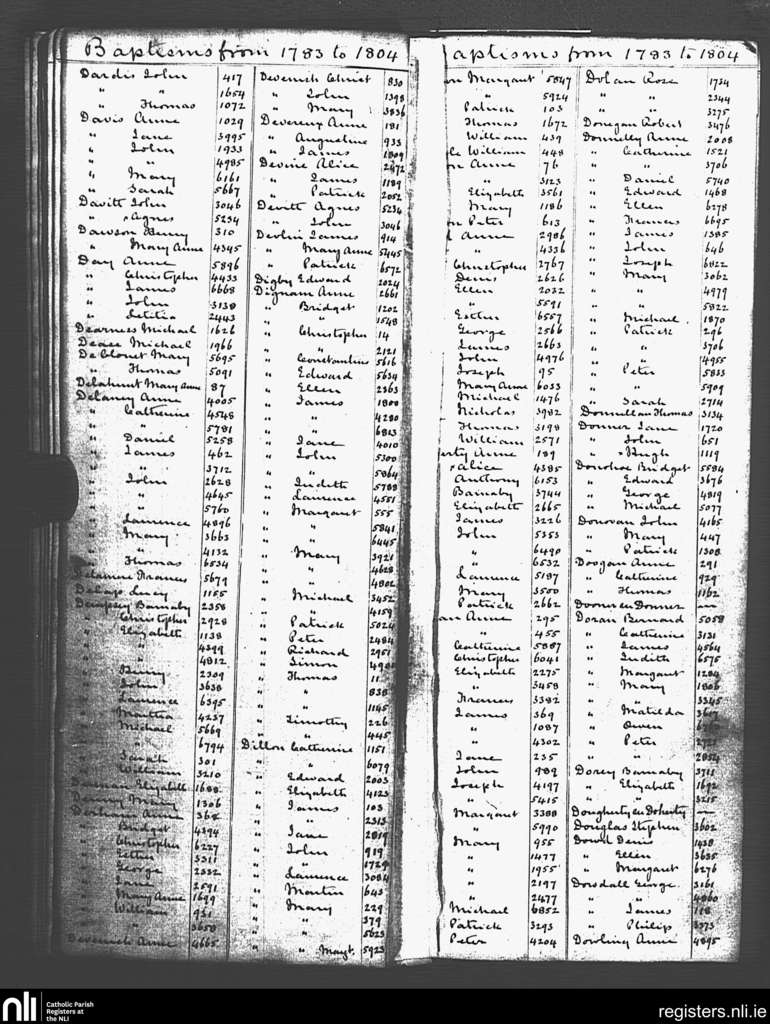 Baptisms from 1783 to 1804
Dardis John 417
" " 1654
" Thomas 1072
Davis Anne 1029
" Jane 3995
" John 1933
" " 4985
" Mary 6161
" Sarah 5667
Davitt John 3046
" × Agnes 5234
Dawson Benny 310
" Mary Anne 4345
Day Anne 5896
" Christopher 4433
" James 6668
" John 3138
" Letitia 2443
Dearness Michael 1626
Dease Michael 1966
De Blonet Mary 5695
" Thomas 5091
Delahunt Mary Anne 87
Delaney Anne 4005
" Catherine 4548
" " 5781
" Daniel 5258
" James 462
" " 3712
" John 2628
" " 4645
" " 5760
" Laurence 4896
" Mary 3663
" " 4132
" Thomas 6534
Frances 5679
Lucy 1155
Dempsey Barnaby 2358
" Christopher 2928
" Elizabeth 1138
" " 4399
" " 4812
" 2309
" John 3638
" Laurence 6395
" Martha 4237
" Michael 5669
" " 6794
" Sarah 301
" William 3210
Elizabeth 1688
Mary 1306
Anne 368
" Bridget 4394
" Christopher 6227
" Esther 3311
" George 2332
" Jane 2591
" Mary Anne 1699
" William 931
" " 3650
Devenish Anne 4665
Devenish Christ 830
" John 1398
" Mary 3836
Devereux Anne 181
" Angueline 933
" James 1809
Devine Alice 2472
" James 1189
" Patrick 2052
Devitt Agnes 5234
" John 3046
Devlin James 914
" Mary Anne 5445
" Patrick 6572
Digby Edward 2024
Dignam Anne 2661
" Bridget 1202
" " 1548
" Christopher 14
" " 2121
" Constantine 5616
" Edward 5634
" Ellen 2363
" James 1808
" " 4280
" " 6813
" Jane 4010
" John 5300
" " 5864
" Judith 5788
" Laurence 4551
" Margaret 555
" " 5841
" " 6445
" Mary 3921
" " 4628
" " 4802
" Michael 3452
" " 4159
" Patrick 5024
" Peter 2484
" Richard 2951
" Simon
" Thomas 11
" " 838
" " 1145
" Timothy 226
" " 445
Dillon Catherine 1151
" " 6079
" Edward 2003
" Elizabeth 4123
" James 103
" " 2313
" Jane 2819
" John 919
" " 1729
" Laurence 3084
" Martin 643
" Mary 229
" " 379
" " 5623
" " Margt. 5923
aptisms from 1783 to 1804
on Margaret 5847
" 5924
Patrick 103
Thomas 1672
William 439
le William 448
on Anne 76
" 3123
Elizabeth 3561
Mary 1186
on Peter 613
Anne 2986
" 4336
Christopher 2767
Denis 2626
Ellen 2032
" 5591
Esther 6557
George 2566
James 2663
John 4976
Joseph 95
Mary Anne 6033
Michael 1476
Nicholas 3982
Thomas 3198
William 2571
erty Anne 189
× Alice 4385
Anthony 6153
Barnaby 3744
Elizabeth 2665
James 3226
John 5353
" 6490
" 6532
Laurence 5187
Mary 3500
Patrick 2662
an Anne 295
" 455
Catherine 5887
Christopher 6041
Elizabeth 2275
" 3458
Frances 3382
James 369
" 1087
" 4302
Jane 235
John 989
Joseph 4197
" 5415
Margaret 3388
" 5990
Mary 955
" 1477
" 1955
" 2197
" 2477
Michael 6852
Patrick 3293
Peter 4204
Dolan Rose 1734
" " 2344
" " 3275
Donegan Robert 3476
Donnelley Anne 2008
" Catherine 1521
" " 3706
" Daniel 5740
" Edward 1468
" Ellen 6278
" Frances 6695
" James 1385
" John 646
" Joseph 6822
" Mary 3062
" " 4979
" " 5822
" Michael 1870
" Patrick 296
" " 3706
" " 4955
" Peter 5833
" " 5909
" Sarah 2714
Donnellan Thomas 3134
Donner Jane 1720
" John 651
" × Hugh 1119
Donohoe Bridget 5584
" Edward 3676
" George 4819
" Michael 5077
Donovan John 4165
" Mary 447
" Patrick 1308
Doogan Anne 291
" Catherine 929
" Thomas 1162
Dooner see Donner —
Doran Bernard 5058
" Catherine 3131
" James 4564
" Judith 6575
" Margaret 1284
" Mary 1806
" " 3345
" Matilda
" Owen
" Peter
" " 2854
Dorey Barnaby 3711
" Elizabeth 1692
" " 3215
Dougherty see Doherty —
Douglas Stephen 3602
Dowd Denis 1438
" Ellen 3635
" Margaret 6276
Dowdall George 3161
" " 4860
" James 118
" Philip 3973
Dowling Anne 4895
nli Catholic Parish
Registers at
the NLI
registers.nli.ie